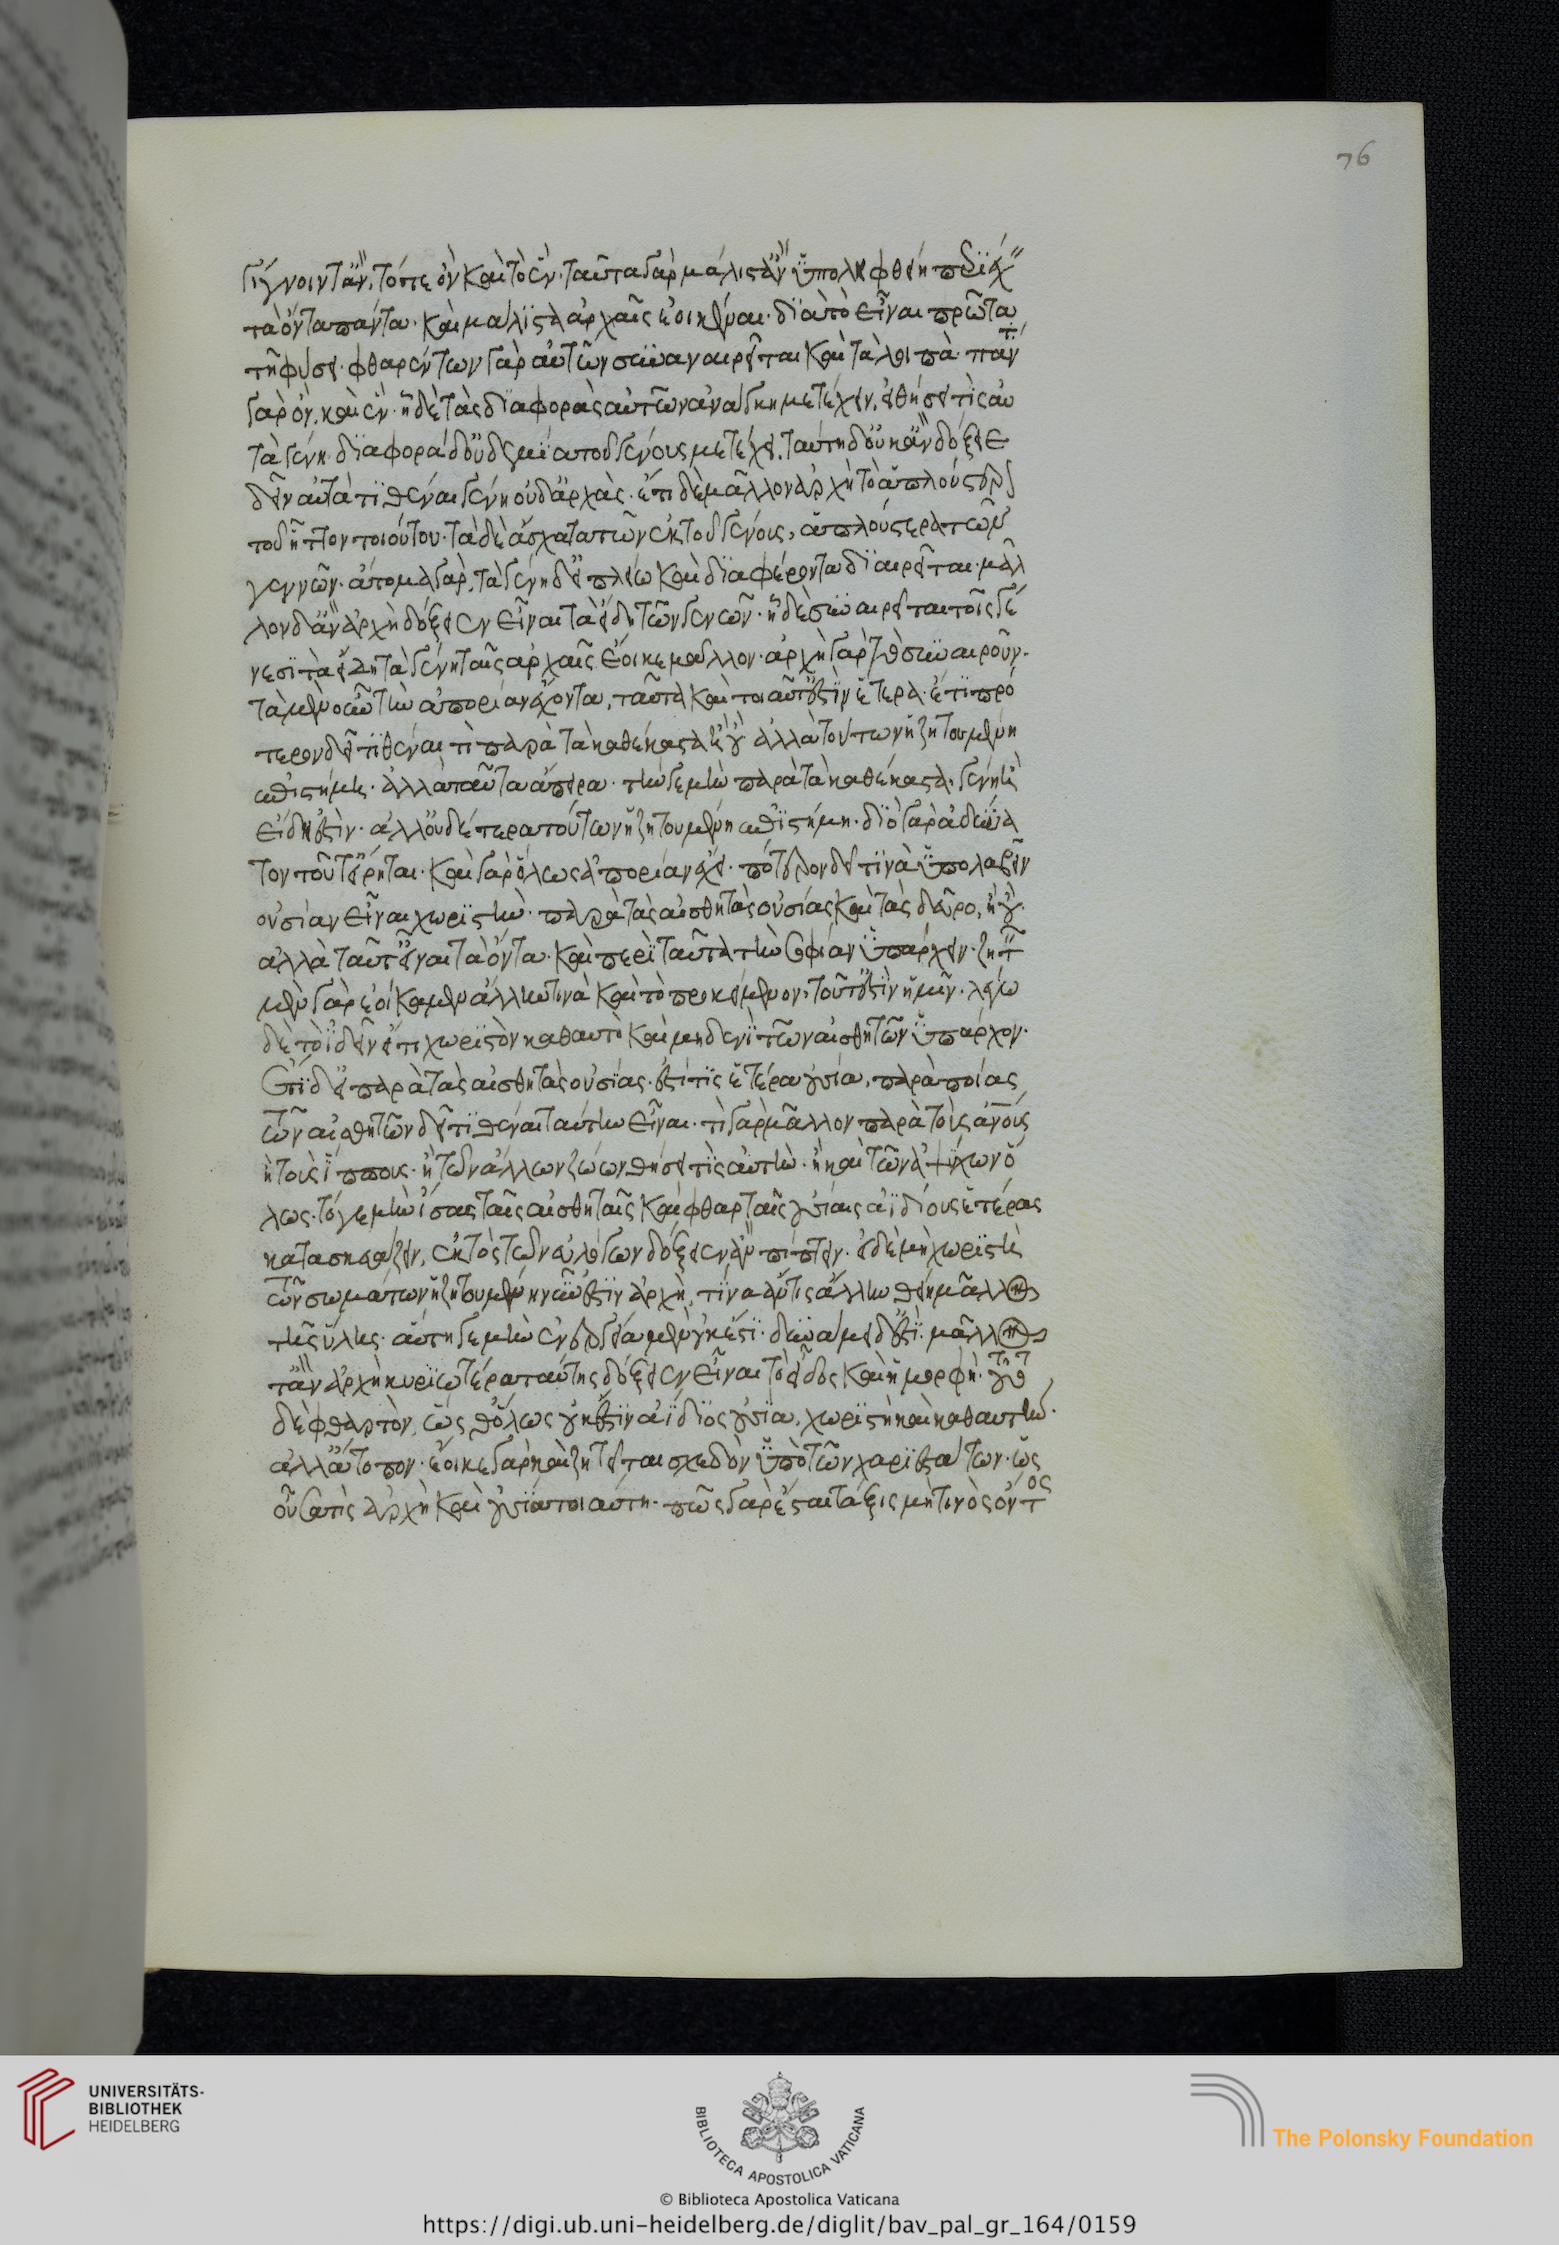 γίγνοιντ᾽ ἂν, τό τε ὂν καὶ τὸ ἓν· ταῦτα γὰρ μάλιστ᾽ ἂν ὑποληφθείη περιέχ
τὰ ὄντα πάντα· καὶ μάλιστα ἀρχαῖς ἐοικέναι· διὰ τὸ εἶναι πρῶτα
τῆ φύσει· φθαρέντων γὰρ αὐτῶν συναναιρεῖται καὶ τὰ λοιπὰ· πᾶν
γὰρ ὂν, καὶ ἓν· ἧ δὲ τὰς διαφορὰς αὐτῶν ἀνάγκη μετέχειν, εἰ θήσει τὶς αὐ
τὰ γένη· διαφορὰ δ᾽ οὐδεμία τοῦ γένους μετέχει, ταύτη δ᾽ οὐκ ἂν δόξειε
δεῖν αὐτὰ τιθέναι γένη οὐδ᾽ ἀρχὰς· ἔτι δὲ μᾶλλον ἀρχὴ τὸ ἁπλούστερον
τοῦ ἧττον τοιούτου· τὰ δὲ ἔσχατα τῶν ἐκ τοῦ γένους, ἁπλούστερα τῶν
γεννῶν· ἄτομα γὰρ, τὰ γένη δ᾽ εἰ πλείω καὶ διαφέροντα διαιρεῖται· μᾶλ
λον δ᾽ ἂν ἀρχὴ δόξειεν εἶναι τὰ εἴδη τῶν γενῶν· ἧ δὲ συναιρεῖται τοῖς γέ
νεσι τὰ εἴδη τὰ γένη ταῖς ἀρχαῖς ἔοικε μᾶλλον· ἀρχὴ γὰρ τὸ συναιροῦν·
τὰ μὲν οὖν τὴν ἀπορίαν ἔχοντα, ταῦτα καὶ τοιαῦτ᾽ ἐστὶν ἕτερα· ἔτι πρό
τερον δεῖ τιθέναι τὶ παρὰ τὰ καθέκαστα ἢ οὐ ἀλλὰ τούτων ἡ ζητουμένη
ἐπιστήμη· ἀλλὰ ταῦτα ἄπειρα· τήν γε μὴν παρὰ τὰ καθέκαστα, γένη ἢ
εἴδη ἐστὶν· ἀλλ᾽ οὐδετέρα τούτων ἡ ζητουμένη ἐπιστήμη· διὸ γὰρ ἀδύνα
τον τοῦτ᾽ εἴρηται· καὶ γὰρ ὅλως ἀπορίαν ἔχει· πότερον δεῖ τινὰ ὑπολαβεῖν
οὐσίαν εἶναι χωριστὴν· παρὰ τὰς αἰσθητὰς οὐσίας καὶ τὰς δεῦρο, ἢ οὐ·
ἀλλὰ ταῦτ᾽ εἶναι τὰ ὄντα· καὶ περὶ ταῦτα τὴν σοφίαν ὑπάρχειν· ζητεῖν
μὲν γὰρ ἐοίκαμεν ἄλλην τινὰ καὶ τὸ προκείμενον, τοῦτ᾽ ἐστὶν ἡμῖν· λέγω
δὲ τὸ ἰδεῖν εἴ τι χωριστὸν καθαυτὸ καὶ μηδενὶ τῶν αἰσθητῶν ὑπάρχον·
ἔτι δ᾽ εἰ παρὰ τὰς αἰσθητὰς οὐσίας· ἔστι τὶς ἑτέρα οὐσία, παρὰ ποίας
τῶν αἰσθητῶν δεῖ τιθέναι ταύτην εἶναι· τὶ γὰρ μᾶλλον παρὰ τοὺς ἀνους
ἢ τοὺς ἵππους· ἢ τῶν ἄλλων ζώων θήσει τὶς αὐτὴν· ἢ καὶ τῶν ἀψύχων ὅ
λως· τό γε μὴν ἴσας ταῖς αἰσθηταῖς καὶ φθαρταῖς οὐσίαις ἀϊδίους ἑτέρας
κατασκευάζειν, ἐκτὸς τῶν εὐλόγων δόξειεν ἂν πίπτειν· εἰ δὲ μὴ χωριστὴ
τῶν σωμάτων ἡ ζητουμένη νῦν ἐστὶν ἀρχὴ, τίνα ἄν τις ἄλλην θείη μᾶλλον
τῆς ὕλης· αὕτη γε μὴν ἐνεργεία μὲν οὐκ ἔστι· δυνάμει δ᾽ ἐστὶ· μᾶλλον
τ᾽ ἂν ἀρχὴ κυριωτέρα ταύτης δόξειεν εἶναι τὸ εἶδος καὶ ἡ μορφὴ· τοῦτο
δὲ φθαρτὸν, ὥς θ᾽ ὅλως οὐκ ἔστιν ἀΐδιος οὐσία, χωριστὴ καὶ καθαυτὴν·
ἀλλ᾽ ἄτοπον· ἔοικε γὰρ καὶ ζητεῖται σχεδὸν ὑπὸ τῶν χαριεστάτων· ὡς
οὖσα τὶς ἀρχὴ καὶ οὐσία τοιαύτη· πῶς γὰρ ἔσται τάξις μὴ τινὸς ὄντος
76
UNIVERSITÄTS-
BIBLIOTHEK
HEIDELBERG
BIBLIOTECA APOSTOLICA VATICANA
The Polonsky Foundation
© Biblioteca Apostolica Vaticana
https://digi.ub.uni-heidelberg.de/diglit/bav_pal_gr_164/0159